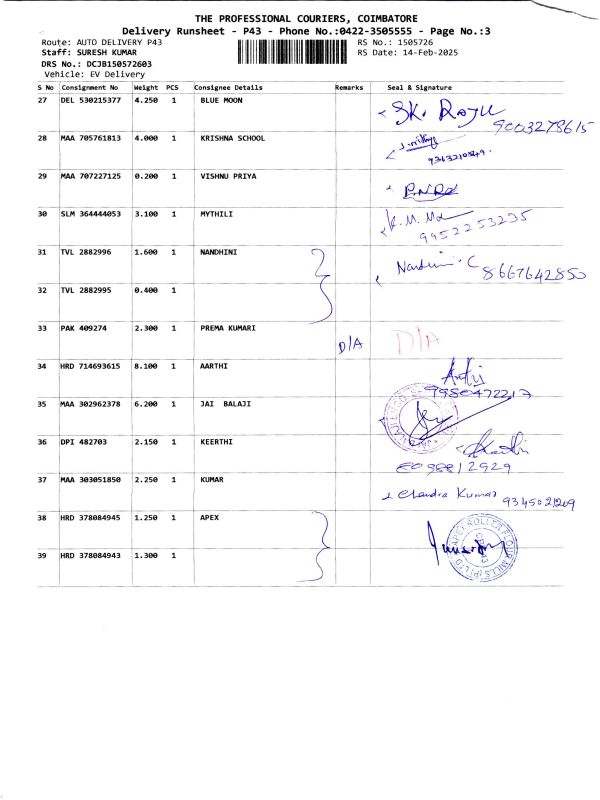 THE PROFESSIONAL COURIERS, COIMBATORE
Delivery Runsheet - P43 - Phone No.:0422-3505555 - Page No.:3
Route: AUTO DELIVERY P43 RS No.: 1505726
Staff: SURESH KUMAR RS Date: 14-Feb-2025
DRS No.: DCJB150572603
Vehicle: EV Delivery
S No Consignment No Weight PCS Consignee Details Remarks Seal & Signature
27 DEL 530215377 4.250 1 BLUE MOON SK. RAJU
9003278615
28 MAA 705761813 4.000 1 KRISHNA SCHOOL
29 MAA 707227125 0.200 1 VISHNU PRIYA
30 SLM 364444053 3.100 1 MYTHILI
9952253235
31 TVL 2882996 1.600 1 NANDHINI Nandini . C 8667642850
32 TVL 2882995 0.400 1
33 PAK 409274 2.300 1 PREMA KUMARI D/A D/A
34 HRD 714693615 8.100 1 AARTHI
9980472217
35 MAA 302962378 6.200 1 JAI BALAJI
36 DPI 482703 2.150 1 KEERTHI
37 MAA 303051850 2.250 1 KUMAR Chandra Kumar 9345021209
38 HRD 378084945 1.250 1 APEX APEX ROLLER FLOUR MILLS (P) LTD
39 HRD 378084943 1.300 1